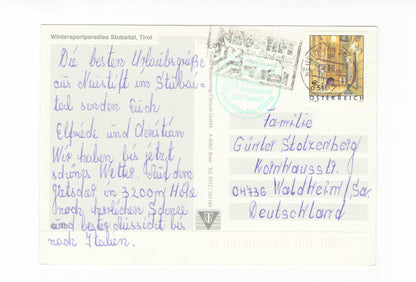 Wintersportparadies Stubaital, Tirol
Die besten Urlaubsgrüße
aus Neustift im Stubai-
tal senden Euch
Elfriede und Christian
Wir haben bis jetzt
schönes Wetter. Auf dem
Gletscher in 3200m Höhe
noch herrlichen Schnee
und beste Aussicht bis
nach Italien.
0,51 €
ÖSTERREICH
Familie
Günter Stolzenberg
Kornhausstr.
04736 Waldheim/Sa.
Deutschland